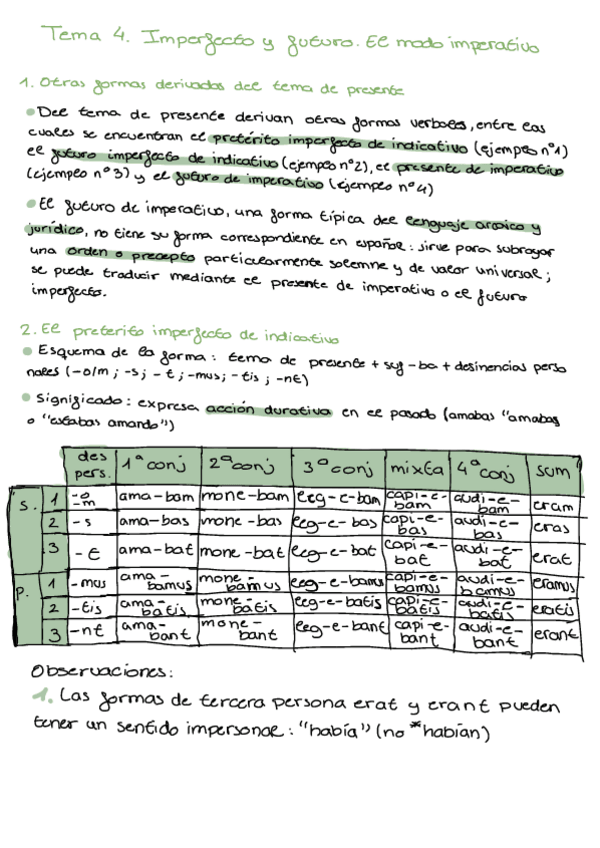 Tema 4. Imperfecto y futuro. El modo imperativo
1. Otras formas derivadas del tema de presente
Del tema de presente derivan otras formas verbales, entre las
cuales se encuentran el pretérito imperfecto de indicativo (ejemplo nº1)
el futuro imperfecto de indicativo (ejemplo nº2), el presente de imperativo
(ejemplo nº3) y el futuro de imperativo (ejemplo nº4)
El futuro de imperativo, una forma típica del lenguaje arcaico y
jurídico, no tiene su forma correspondiente en español: sirve para subrayar
una orden o precepto particularmente solemne y de valor universal;
se puede traducir mediante el presente de imperativo o el futuro
imperfecto.
2. El preterito imperfecto de indicativo
Esquema de la forma: tema de presente + suf -ba + desinencias perso
nales (-o/m ; -s; -t ; -mus; -tis ; -nt)
Significado: expresa acción durativa en el pasado (amabas "amabas
o "estabas amando")
des pers. 1ª conj 2ª conj 3ª conj mixta 4ª conj sum
s. 1 -o -m ama-bam mone-bam leg-e-bam capi-e-bam audi-e-bam eram
2 -s ama-bas mone-bas leg-e-bas capi-e-bas audi-e-bas eras
3 -t ama-bat mone-bat leg-e-bat capi-e-bat audi-e-bat erat
p. 1 -mus ama-bamus mone-bamus leg-e-bamus capi-e-bamus audi-e-bamus eramus
2 -tis ama-batis mone-batis leg-e-batis capi-e-batis audi-e-batis eratis
3 -nt ama-bant mone-bant leg-e-bant capi-e-bant audi-e-bant erant
Observaciones:
1. Las formas de tercera persona erat y erant pueden
tener un sentido impersonal: "había" (no *habían)